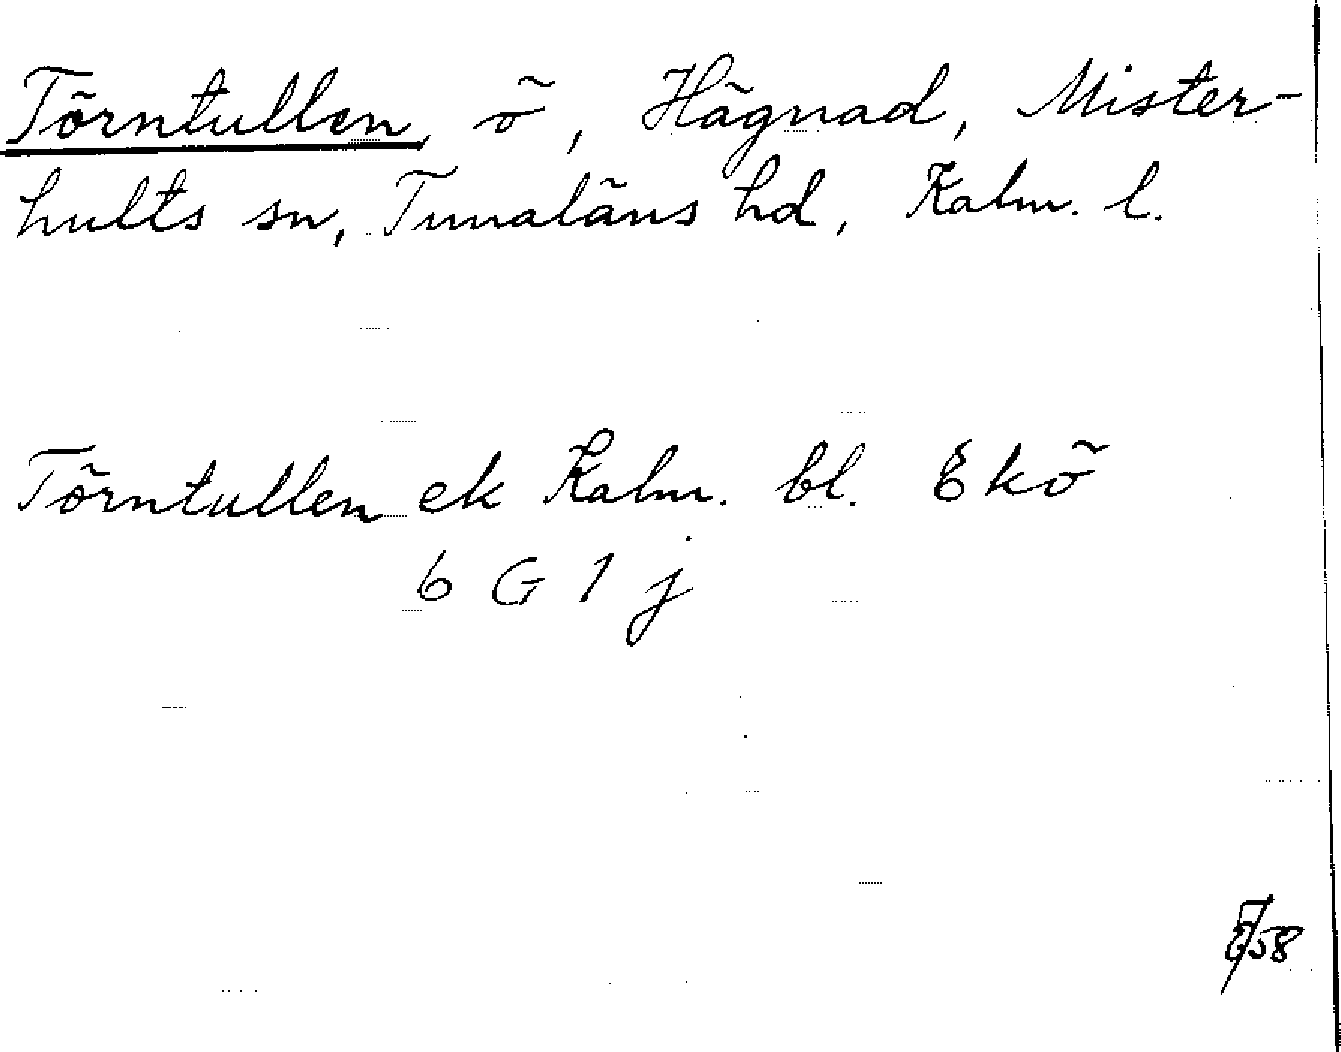 Törntullen, ö, Hägnad, Mister-
hults sn, Tunaläns hd, Kalm. l.
Törntullen ek Kalm. bl. Ekö
6 G 1 j
58